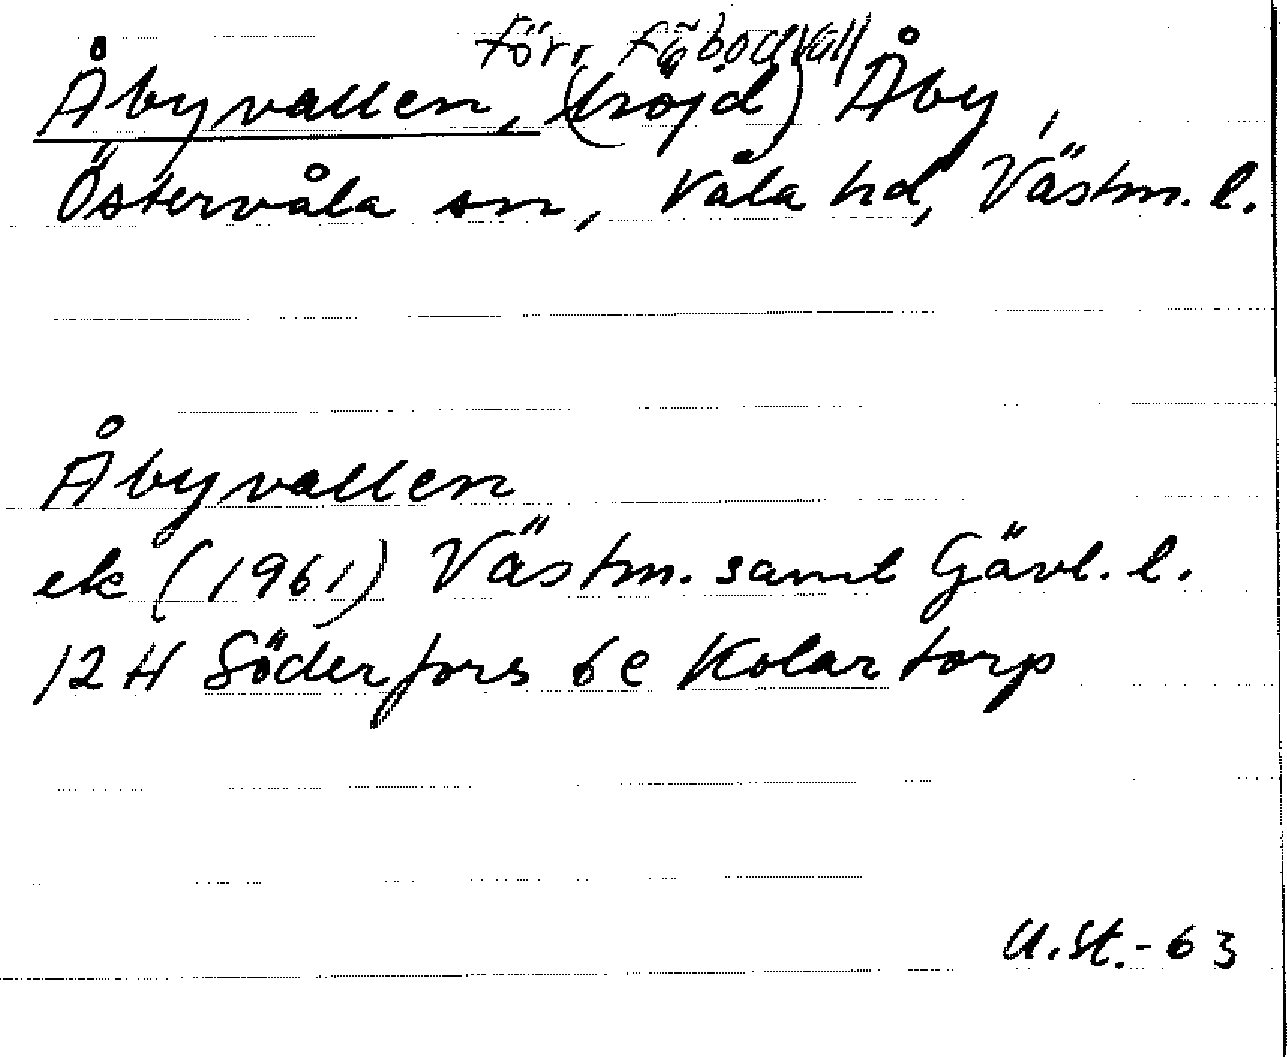 förr fäbodvall
Åbyvallen, (höjd) Åby,
Östervåla sn, Våla hd, Västm. l.
Åbyvallen
ek (1961) Västm. samt Gävl. l.
12 H Söderfors 6c Kolartorp
U.St.-63